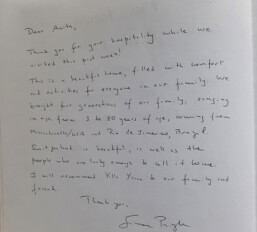 Dear Anita,
Thank you for your hospitality while we
visited this past week!
This is a beautiful home, filled with comfort
and activities for everyone in our family. We
brought four generations of our family, ranging
in age from 2 to 80 years of age, coming from
Minneapolis/USA and Rio de Janeiro, Brazil
Switzerland is beautiful, as well as the
people who are lucky enough to call it home.
I will recommend Villa to our family and
friends.
Thank you,